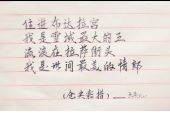 住进布达拉宫
我是雪域最大的王
流浪在拉萨街头
我是世间最美的情郎
(仓央嘉措)